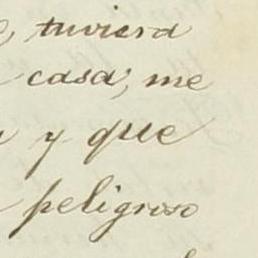 tuviera
casa, me
y que
peligroso